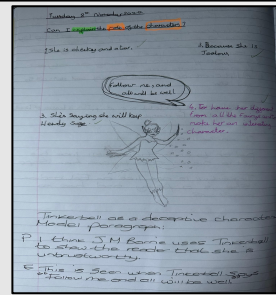 Tuesday 8th November 2022
Can I explain the role of the characters?
1. She is cheeky and clever.
2. Because she is
Jealous.
Follow me, and
all will be well
3. She's saying she will keep
Wendy safe
4. For
from all the
makes her an
character.
Tinkerbell as a deceptive character
Model paragraph:
P I think J M Barrie uses Tinkerbell
to show the reader that she is
untrustworthy.
E This is seen when Tinkerbell says
"follow me and all will be well